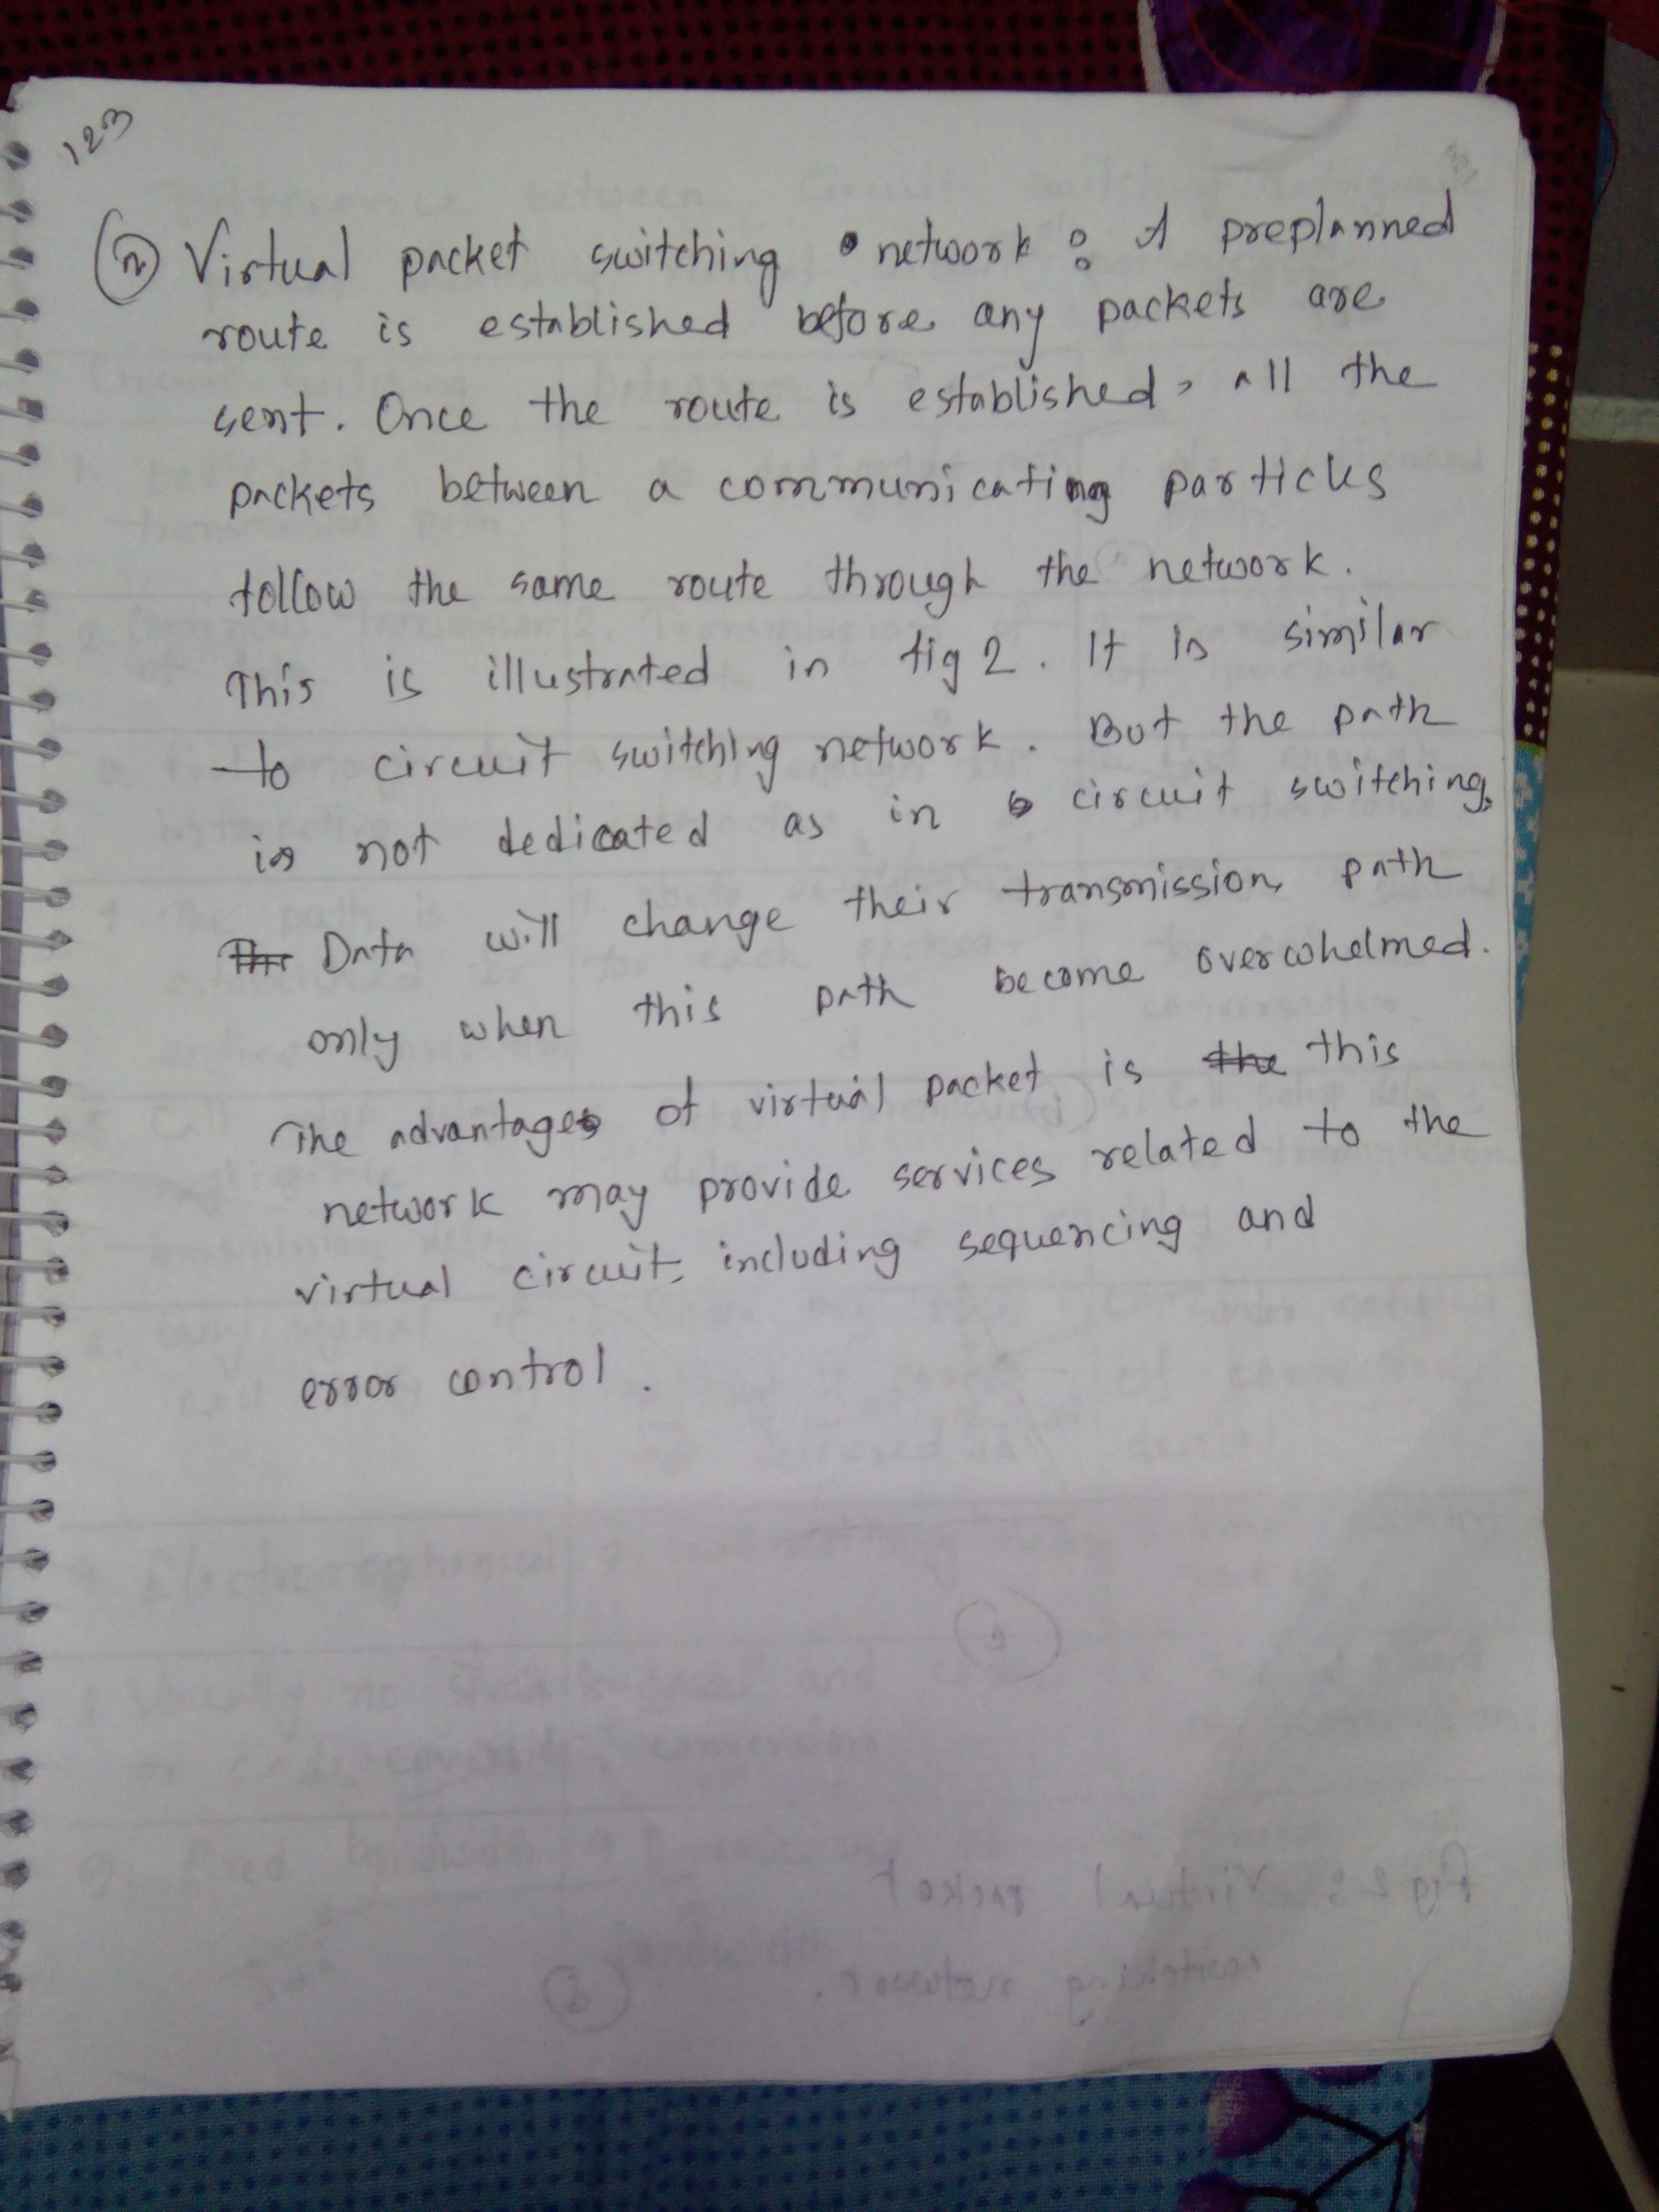 123
② Virtual packet switching network : A preplanned
route is established before any packets are
sent. Once the route is established, all the
packets between a communicating particks
follow the same route through the network.
This is illustrated in fig 2. It is similar
to circuit switching network. But the path
is not dedicated as in circuit switching.
Data will change their transmission path
only when this path become overwhelmed.
The advantages of virtual packet is the this
network may provide services related to the
virtual circuit, including sequencing and
error control.
Fig 2: Virtual packet
switching network.